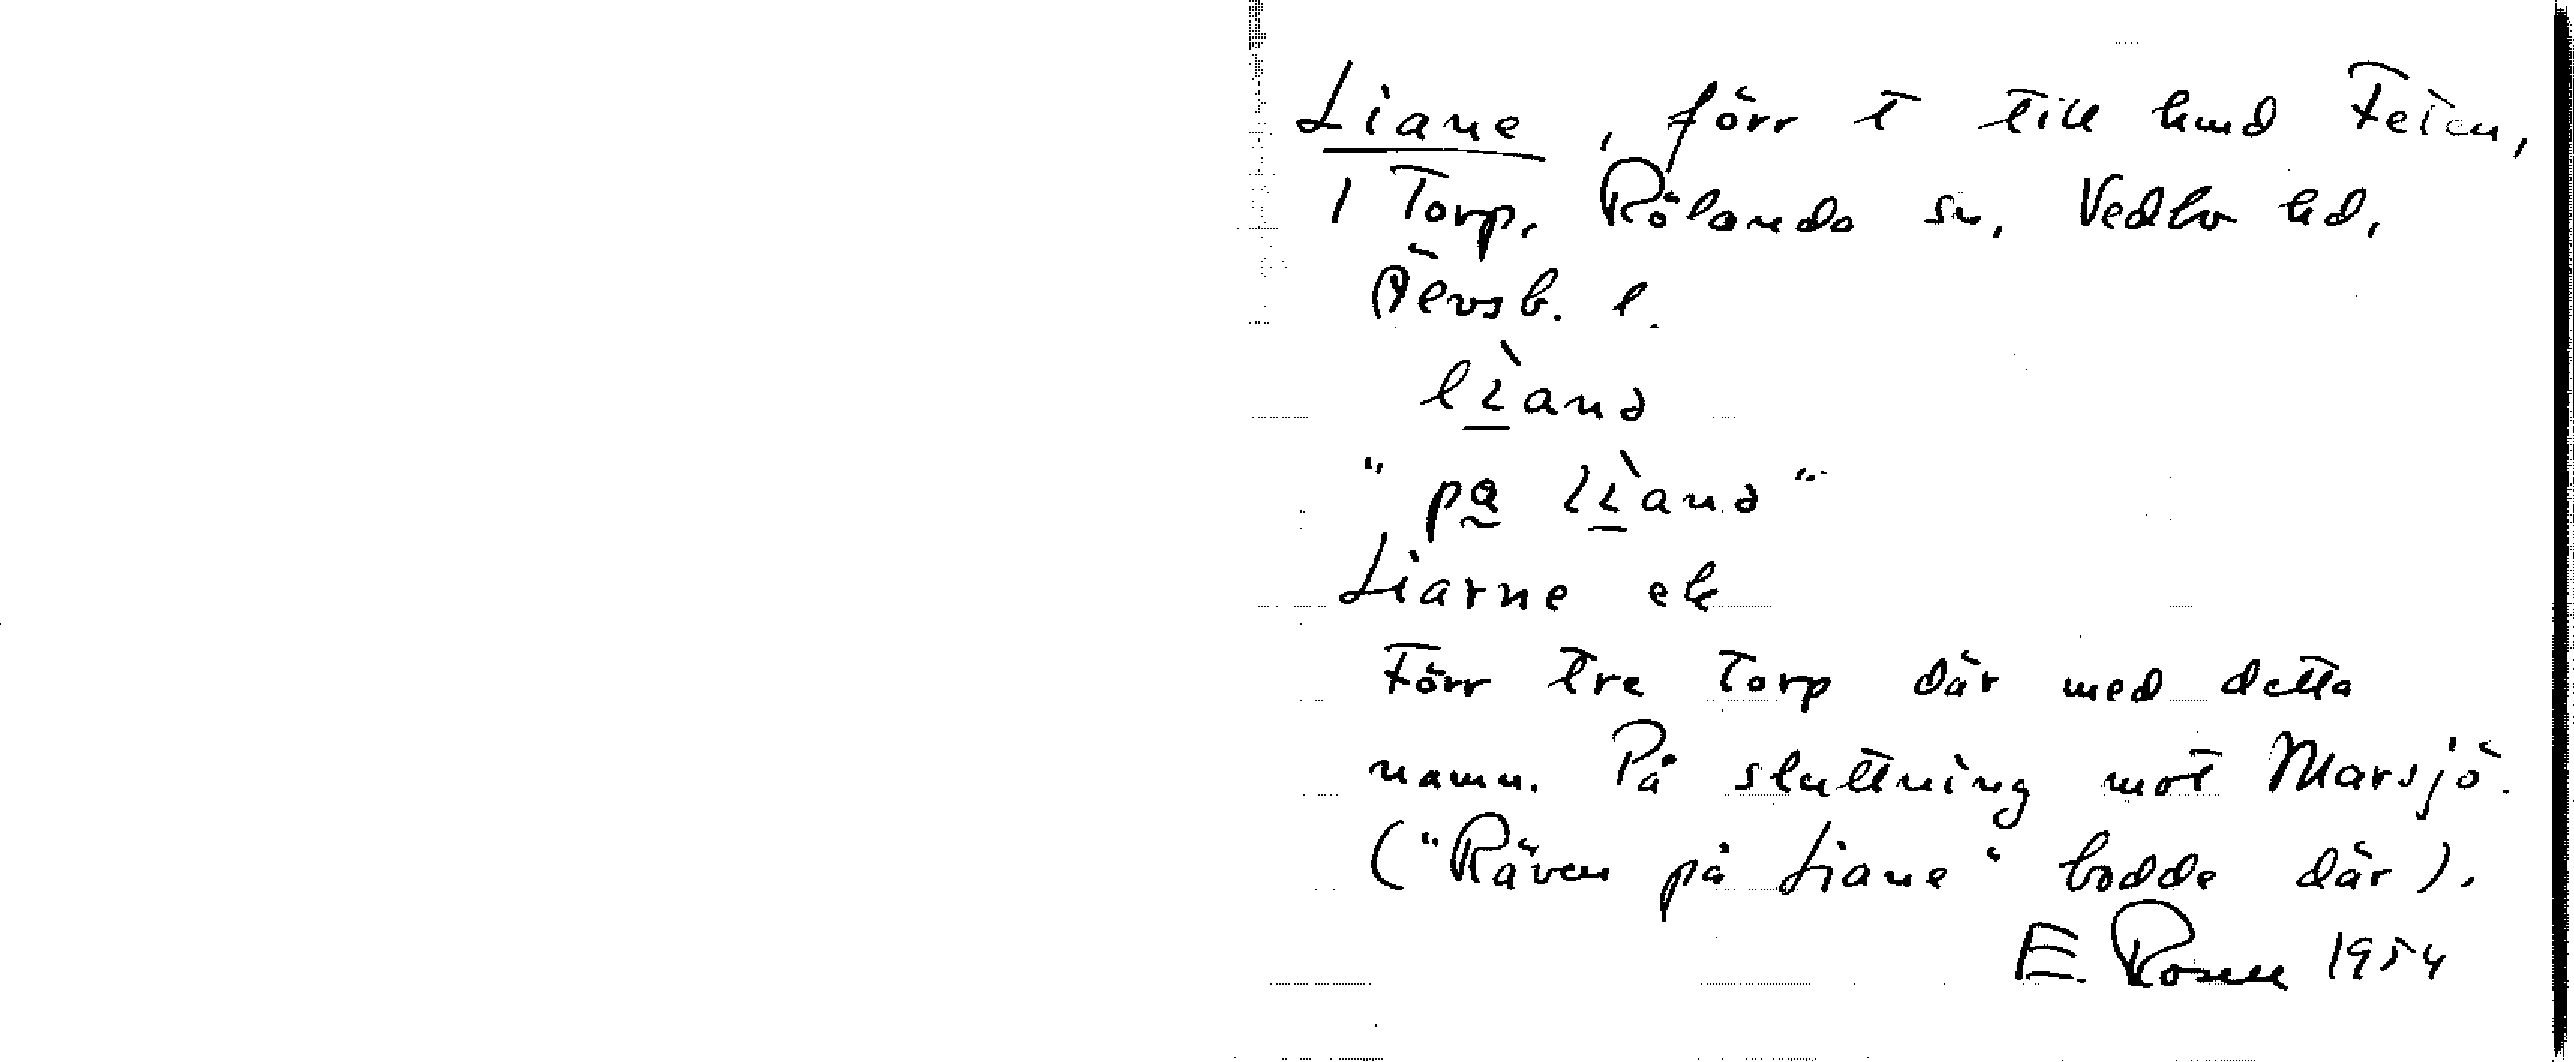 Liane, förr t till hmd Feten,
1 Torp, Rölanda sn, Vedbo hd,
Älvsb. l.
lìanə
"pa lìanə"
Liarne ek
Förr tre torp där med detta
namn. På sluttning mot Marsjö.
("Räven på Liane" bodde där).
E. Rosell 1954